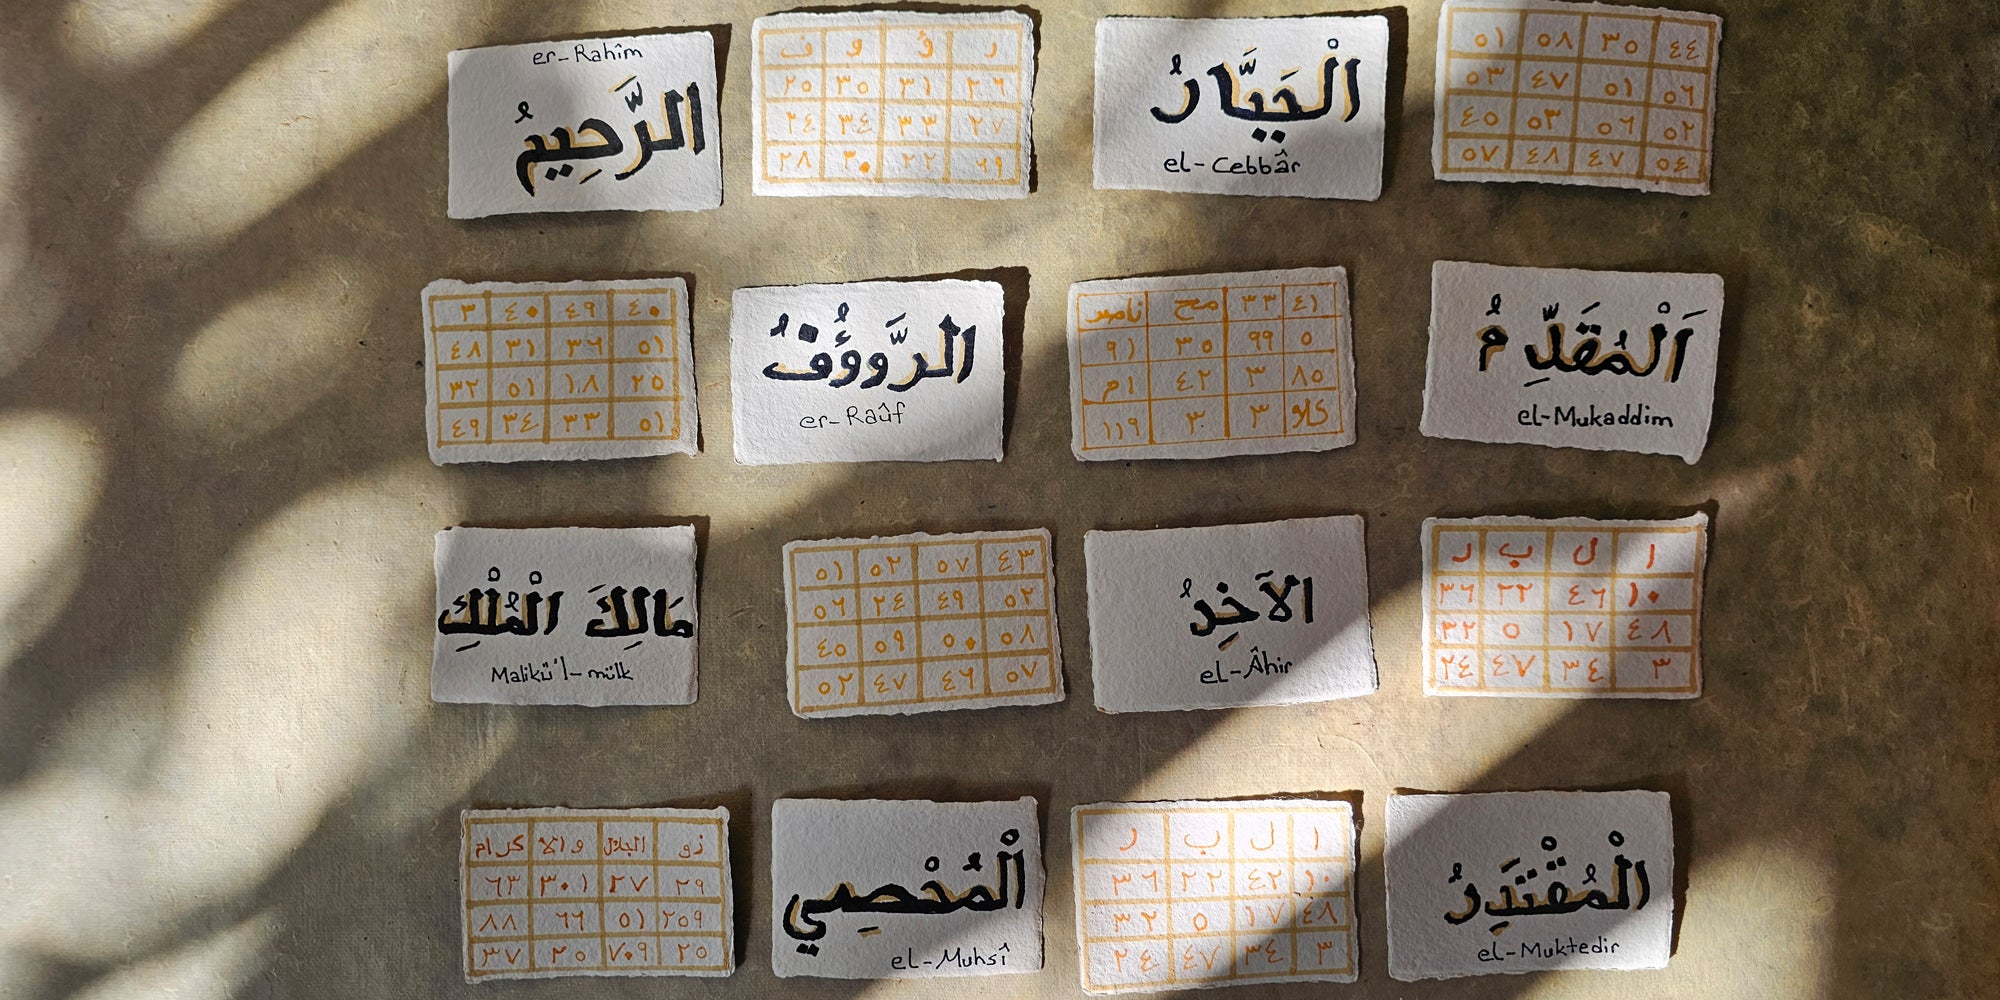 er-Rahîm
الرَّحِيمُ
ر ؤ و ف
٢٦ ٣١ ٣٥ ٢٥
٢٧ ٣٣ ٣٤ ٢٤
٦٩ ٢٢ ٣٠ ٢٨
الْجَبَّارُ
el-Cebbâr
٤٤ ٣٥ ٥٨ ٥١
٥٦ ٥١ ٤٧ ٥٣
٥٢ ٥٦ ٥٣ ٤٥
٥٤ ٤٧ ٤٨ ٥٧
٤٠ ٤٩ ٤٠ ٣
٥١ ٣٦ ٣١ ٤٨
٢٥ ١٨ ٥١ ٣٢
٥١ ٣٣ ٣٤ ٤٩
الرَّووُفُ
er-Raûf
٤١ ٣٣ مح
٥ ٩٩ ٣٥ ٩١
٨٥ ٣ ٤٢ ١م
٣ ٣ ١١٩
اَلْمُقَدِّمُ
el-Mukaddim
مَالِكَ الْمُلْكِ
Malikü'l-mülk
٤٣ ٥٧ ٥٢ ٥١
٥٢ ٤٩ ٢٤ ٥٦
٥٨ ٥٠ ٥٩ ٤٥
٥٧ ٤٦ ٤٧ ٥٢
الآخِرُ
el-Âhir
ا ل ب ر
١٠ ٤٦ ٢٢ ٣٦
٤٨ ١٧ ٥ ٣٢
٣ ٣٤ ٤٧ ٢٤
ذو الجلال والا كرام
٢٩ ٢٧ ٣٠١ ٦٣
٢٥٩ ٥١ ٦٦ ٨٨
٢٥ ٧٠٩ ٢٥ ٣٧
الْمُحْصِي
el-Muhsî
ا ل ب ر
١٠ ٤٢ ٢٢ ٣٦
٤٨ ١٧ ٥ ٣٢
٣ ٣٤ ٤٧ ٢٤
الْمُقْتَدِرُ
el-Muktedir